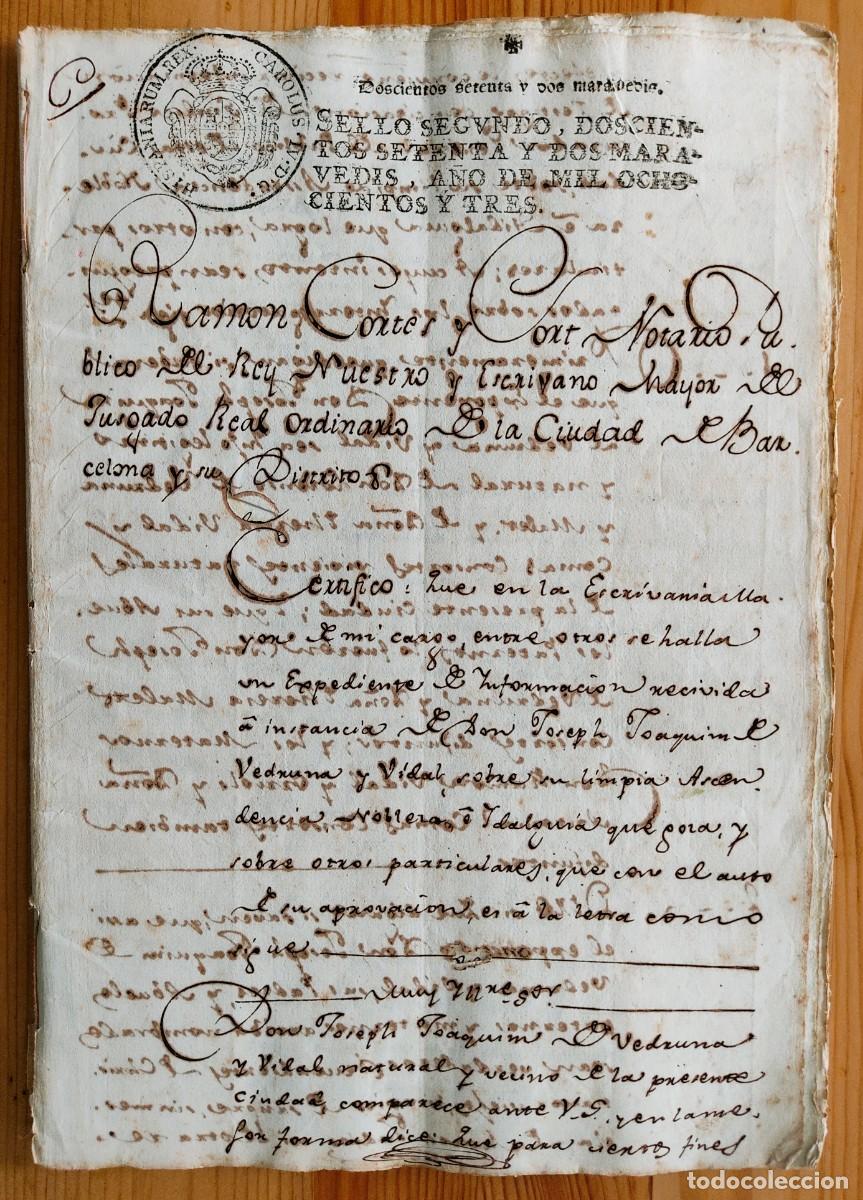 HISPANIARUM REX. CAROLUS IV D.G.
Doscientos setenta y dos maravedis.
SELLO SEGVNDO, DOSCIEN-
TOS SETENTA Y DOS MARA-
VEDIS, AÑO DE MIL OCHO-
CIENTOS Y TRES.
Ramon Cortes y Sort Notario Pu-
blico del Rey Nuestro y Escrivano Mayor del
Jusgado Real Ordinario de la Ciudad de Bar
celona y su Distrito
Certifico: Que en la Escrivania Ma-
yor de mi cargo, entre otros se halla
un Expediente de Informacion recivida
â instancia de Don Joseph Joaquim de
Vedruna y Vidal, sobre su limpia Ascen
dencia Noblera, ê Idalguia que gosa, y
sobre otros particulares, que con el auto
de su aprovacion, es â la letra como
sigue
Muy Iltre. Sor.
Don Joseph Joaquim de Vedruna
y Vidal natural y vecino de la presente
Ciudad, comparece ante V.S. y en la me-
jor forma dice: Que para ciertos fines
todocoleccion